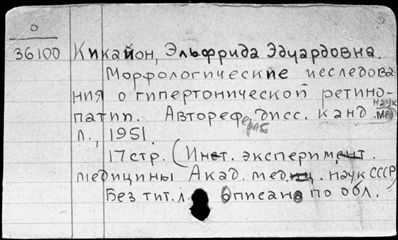 0
36100 Кикайон, Эльфрида Эдуардовна.
Морфологические исследова
ния о гипертонической ретино-
патии. Автореф. дисс. канд. мед. наук
Л., 1951.
17 стр. (Инст. эксперимент.
медицины Акад. мед. наук СССР)
Без тит. л. Описано по обл.